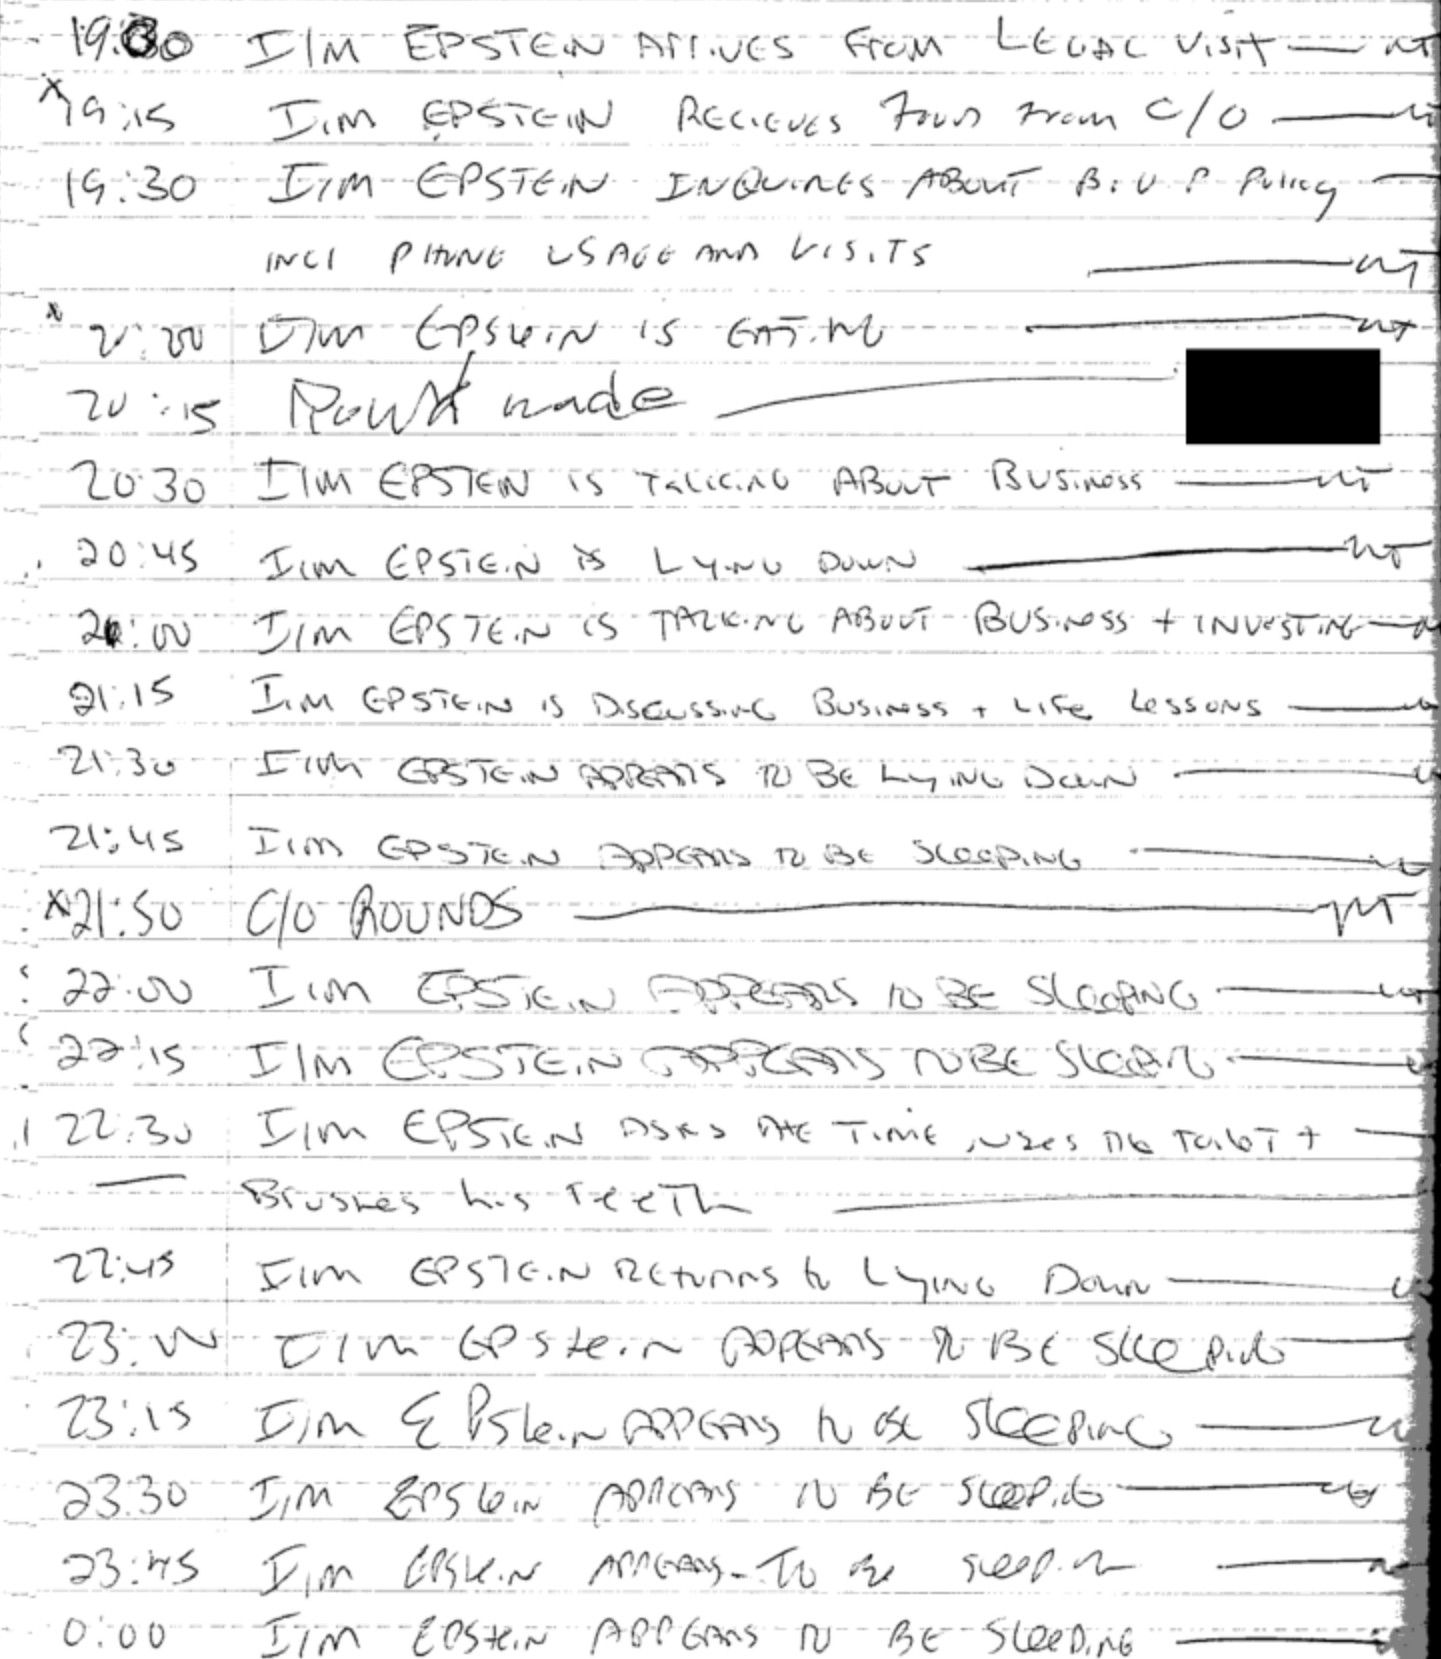 19:00 I/M EPSTEIN ARRIVES FROM LEGAL VISIT — NT
X 19:15 I/M EPSTEIN RECIEVES FOOD FROM C/O
19:30 I/M EPSTEIN INQUIRES ABOUT POLICY
INCL PHONE USAGE AND VISITS — NT
X I/M EPSTEIN IS EATING — NT
20:15 Round made
20:30 I/M EPSTEIN IS TALKING ABOUT BUSINESS — NT
20:45 I/M EPSTEIN IS LYING DOWN — NT
21:00 I/M EPSTEIN IS TALKING ABOUT BUSINESS + INVESTING
21:15 I/M EPSTEIN IS DISCUSSING BUSINESS + LIFE LESSONS
21:30 I/M EPSTEIN APPEARS TO BE LYING DOWN
21:45 I/M EPSTEIN APPEARS TO BE SLEEPING
X 21:50 C/O ROUNDS — NT
22:00 I/M EPSTEIN APPEARS TO BE SLEEPING
22:15 I/M EPSTEIN APPEARS TO BE SLEEPING
22:30 I/M EPSTEIN ASKS THE TIME, USES THE TOILET +
— BRUSHES HIS TEETH
22:45 I/M EPSTEIN RETURNS TO LYING DOWN
23:00 I/M EPSTEIN APPEARS TO BE SLEEPING
23:15 I/M EPSTEIN APPEARS TO BE SLEEPING
23:30 I/M EPSTEIN APPEARS TO BE SLEEPING
23:45 I/M EPSTEIN APPEARS TO BE SLEEPING
0:00 I/M EPSTEIN APPEARS TO BE SLEEPING